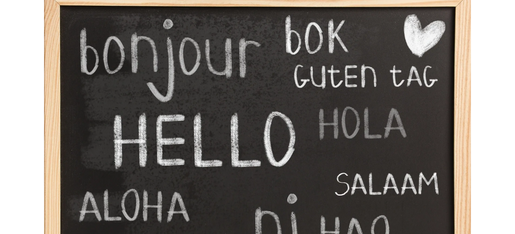 bonjour
bok
GUTEN tAG
HELLO
HOLA
SALAAM
ALOHA
ni HAO